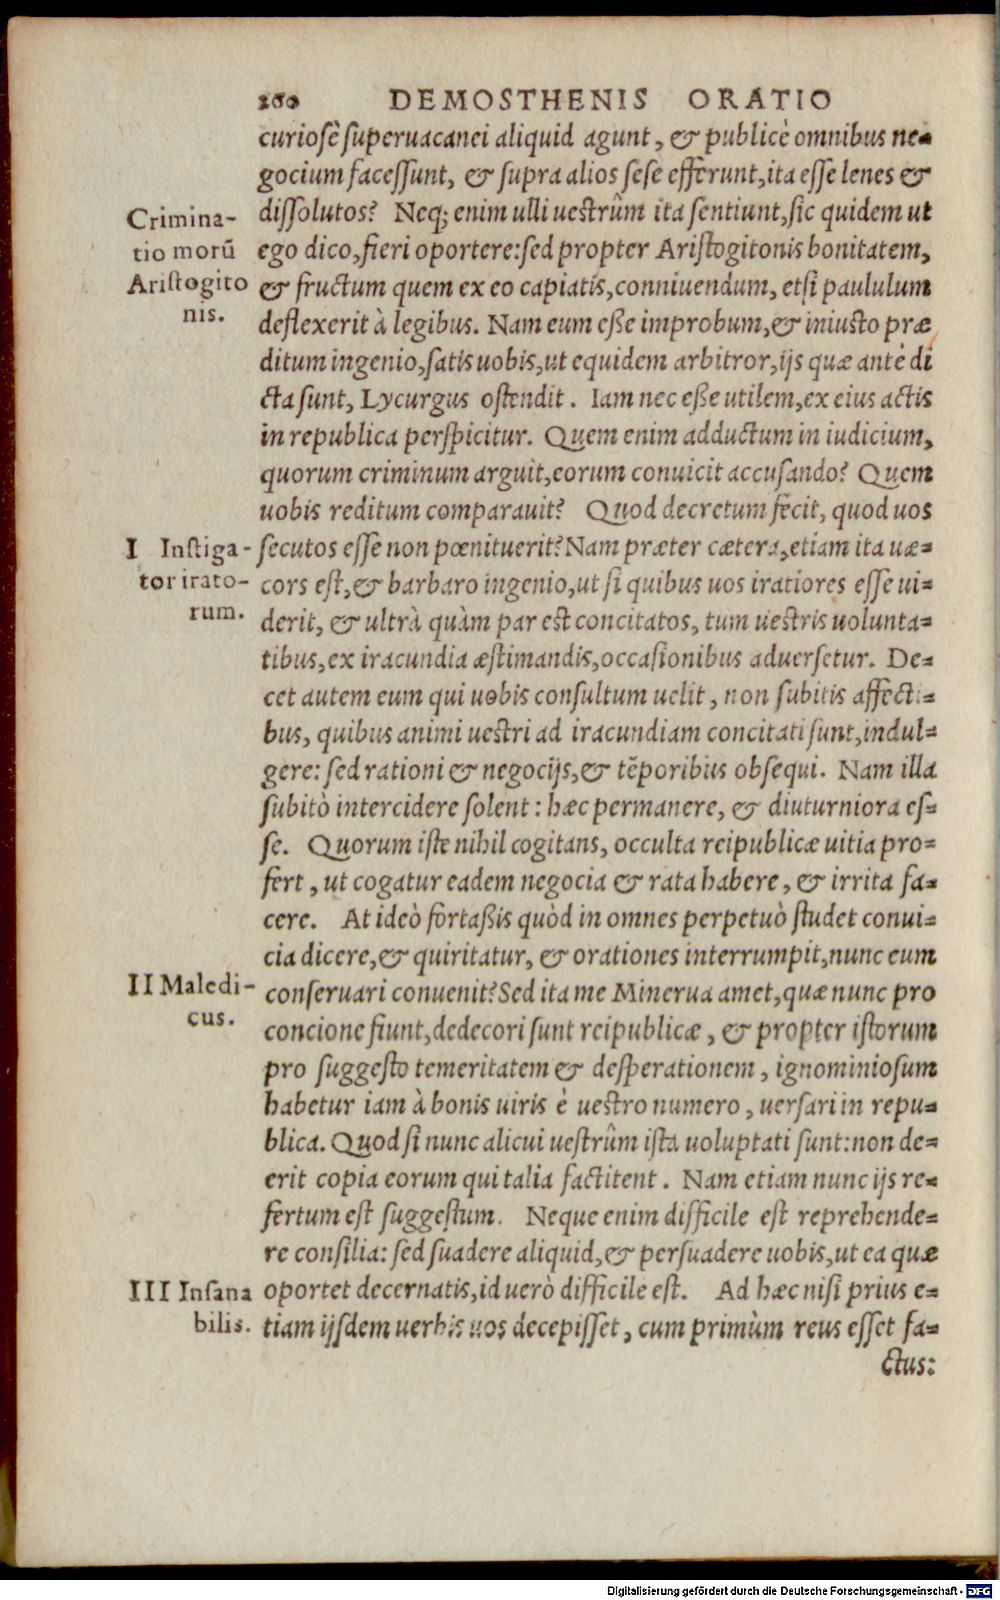 260 DEMOSTHENIS ORATIO
curiosè superuacanei aliquid agunt, & publicè omnibus ne-
gocium facessunt, & supra alios sese efferunt, ita esse lenes &
Crimina-
dissolutos? Neq; enim ulli uestrûm ita sentiunt, sic quidem ut
tio morū
ego dico, fieri oportere: sed propter Aristogitonis bonitatem,
Aristogito
& fructum quem ex eo capiatis, conniuendum, etsi paululum
nis.
deflexerit à legibus. Nam eum eße improbum, & iniusto præ
ditum ingenio, satis uobis, ut equidem arbitror, ijs quæ antè di
cta sunt, Lycurgus ostendit. Iam nec eße utilem, ex eius actis
in republica perspicitur. Quem enim adductum in iudicium,
quorum criminum arguit, eorum conuicit accusando? Quem
uobis reditum comparauit? Quod decretum fecit, quod uos
I Instiga-
secutos esse non pœnituerit? Nam præter cætera, etiam ita uæ-
tor irato-
cors est, & barbaro ingenio, ut si quibus uos iratiores esse ui-
rum.
derit, & ultrà quàm par est concitatos, tum uestris uolunta-
tibus, ex iracundia æstimandis, occasionibus aduersetur. De-
cet autem eum qui uobis consultum uelit, non subitis affecti-
bus, quibus animi uestri ad iracundiam concitati sunt, indul-
gere: sed rationi & negocijs, & tēporibus obsequi. Nam illa
subitò intercidere solent: hæc permanere, & diuturniora es-
se. Quorum iste nihil cogitans, occulta reipublicæ uitia pro-
fert, ut cogatur eadem negocia & rata habere, & irrita fa-
cere. At ideò fortaßis quòd in omnes perpetuò studet conui-
cia dicere, & quiritatur, & orationes interrumpit, nunc eum
II Maledi-
conseruari conuenit? Sed ita me Minerua amet, quæ nunc pro
cus.
concione fiunt, dedecori sunt reipublicæ, & propter istorum
pro suggesto temeritatem & desperationem, ignominiosum
habetur iam à bonis uiris è uestro numero, uersari in repu-
blica. Quod si nunc alicui uestrûm ista uoluptati sunt: non de-
erit copia eorum qui talia factitent. Nam etiam nunc ijs re-
fertum est suggestum. Neque enim difficile est reprehende-
re consilia: sed suadere aliquid, & persuadere uobis, ut ea quæ
III Insana
oportet decernatis, id uerò difficile est. Ad hæc nisi prius e-
bilis.
tiam ijsdem uerbis uos decepisset, cum primùm reus esset fa-
ctus:
Digitalisierung gefördert durch die Deutsche Forschungsgemeinschaft - DFG